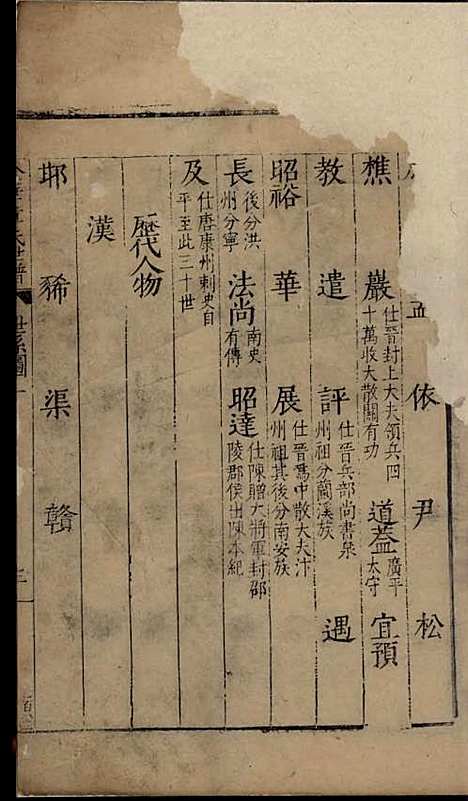 孟依尹松
樵巖仕晉封上大夫領兵四十萬收大散關有功道蓋廣平太守宜預
教遣評仕晉兵部尚書泉州祖分蘭溪族遇
昭裕華展仕晉爲中散大夫汴州祖其後分南安族
長後分洪州分寧法尚南史有傳昭達仕陳贈大將軍封邵陵郡侯出陳本紀
及仕唐康州刺史自平至此三十世
歷代人物
漢
邯豨渠贛
世系圖
三